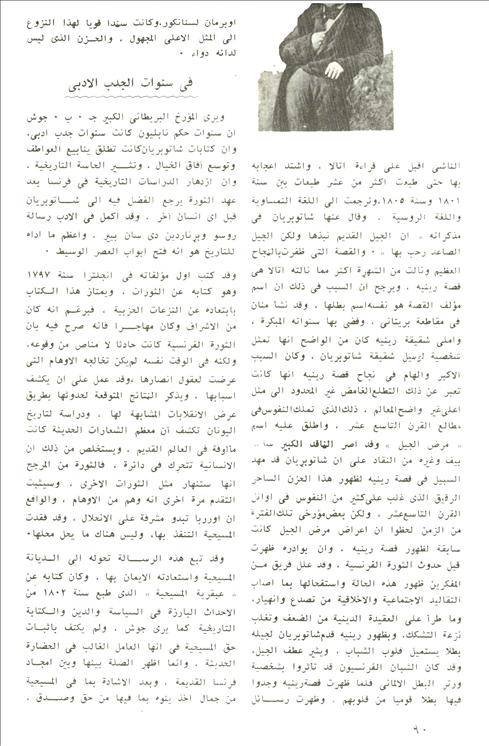 الناشئ اقبل على قراءة اتالا ، واشتد اعجابه
بها حتى طبعت اكثر من عشر طبعات بين سنة
١٨٠١ وسنة ١٨٠٥، وترجمت الى اللغة النمساوية
واللغة الروسية . وقال عنها شاتوبريان في
مذكراته « ان الجيل القديم نبذها ولكن الجيل
الصاعد رحب بها » . والقصة التى ظفرت بالنجاح
العظيم ونالت من الشهرة اكثر مما نالته اتالا هى
قصة رينيه ، ويرجح ان السبب في ذلك ان اسم
مؤلف القصة هو نفسه اسم بطلها ، وقد نشأ منان
في مقاطعة بريتانى ، وقضى بها سنواته المبكرة ،
واملى شقيقة رينيه كان من الواضح انها تمثل
شخصية لوسيل شقيقة شاتوبريان ، وكان السبب
الاكبر والهام في نجاح قصة رينيه انها كانت
تعبر عن ذلك التطلع الغامض غير المحدود الى مثل
اعلى غير واضح المعالم ، ذلك الذى تملك النفوس في
مطالع القرن التاسع عشر ، واطلق عليه اسم
« مرض الجيل » وقد اصر الناقد الكبير سانت
بيف وغيره من النقاد على ان شاتوبريان قد مهد
السبيل في قصة رينيه لظهور هذا الحزن الساحر
الرقيق الذى غلب على كثير من النفوس في اوائل
القرن التاسع عشر ، ولكن بعض مؤرخى تلك الفترة
من الزمن لحظوا ان اعراض مرض الجيل كانت
سابقة لظهور قصة رينيه ، وان بوادره ظهرت
قبل حدوث الثورة الفرنسية ، وقد علل فريق من
المفكرين ظهور هذه الحالة واستفحالها بما اصاب
التقاليد الاجتماعية والاخلاقية من تصدع وانهيار،
وما طرأ على العقيدة الدينية من الضعف وتغلب
نزعة التشكك، وبظهور رينيه قدم شاتوبريان لجيله
بطلا يستميل قلوب الشباب ، ويثير عطف الجيل،
وقد كان الشبان الفرنسيون قد تأثروا بشخصية
ورتر البطل الالمانى فلما ظهرت قصة رينيه وجدوا
فيها بطلا قوميا من قلوبهم . وظهرت رسائل
اوبرمان لسنانكور، وكانت سندا قويا لهذا النزوع
الى المثل الاعلى المجهول ، والحزن الذى ليس
لدائه دواء .
فى سنوات الجدب الادبى
ويرى المؤرخ البريطانى الكبير ج . ب . جوش
ان سنوات حكم نابليون كانت سنوات جدب ادبى،
وان كتابات شاتوبريان كانت تطلق ينابيع العواطف
وتوسع آفاق الخيال ، وتثير الحاسة التاريخية ،
وان ازدهار الدراسات التاريخية في فرنسا بعد
عهد الثورة يرجع الفضل فيه الى شاتوبريان
قبل اى انسان آخر . وقد اكمل في الادب رسالة
روسو وبرناردين دى سان بيير . واعظم ما اداه
للتاريخ هو انه فتح ابواب العصر الوسيط .
وقد كتب اول مؤلفاته في انجلترا سنة ١٧٩٧
وهو كتابه عن الثورات ، ويمتاز هذا الكتاب
بابتعاده عن النزعات الحزبية ، فبرغم انه كان
من الاشراف وكان مهاجرا فانه صرح فيه بان
الثورة الفرنسية كانت حادثا لا مناص من وقوعه،
ولكنه في الوقت نفسه لم يكن تخالجه الاوهام التى
عرضت لعقول انصارها ،وقد عمل على ان يكشف
اسبابها ، ويذكر النتائج المتوقعة لحدوثها بطريق
عرض الانقلابات المشابهة لها ، ودراسة تاريخ
اليونان تكشف أن معظم الشعارات الحديثة كانت
مألوفة في العالم القديم ، ويستخلص من ذلك ان
الانسانية تتحرك في دائرة ، فالثورة من المرجح
انها ستنهار مثل الثورات الاخرى ، وسيثبت
التقدم مرة اخرى انه وهم من الاوهام ، والواقع
ان اوربا تبدو مشرفة على الانحلال ، وقد فقدت
المسيحية التنفذ بها، وليس هناك ما يحل محلها.
وقد تبع هذه الرسالة تحوله الى الديانة
المسيحية واستعادته الايمان بها ، وكان كتابه عن
« عبقرية المسيحية » الذى طبع سنة ١٨٠٢ من
الاحداث البارزة في السياسة والدين والكتابة
التاريخية كما يرى جوش . ولم يكتف باثبات
حق المسيحية في انها العامل الغالب في الحضارة
الحديثة ، وانما اظهر الصلة بينها وبين امجاد
فرنسا القديمة ، وبعد الاشادة بما في المسيحية
من جمال اخذ ينوه بما فيها من حق وصدق ،
٩٠